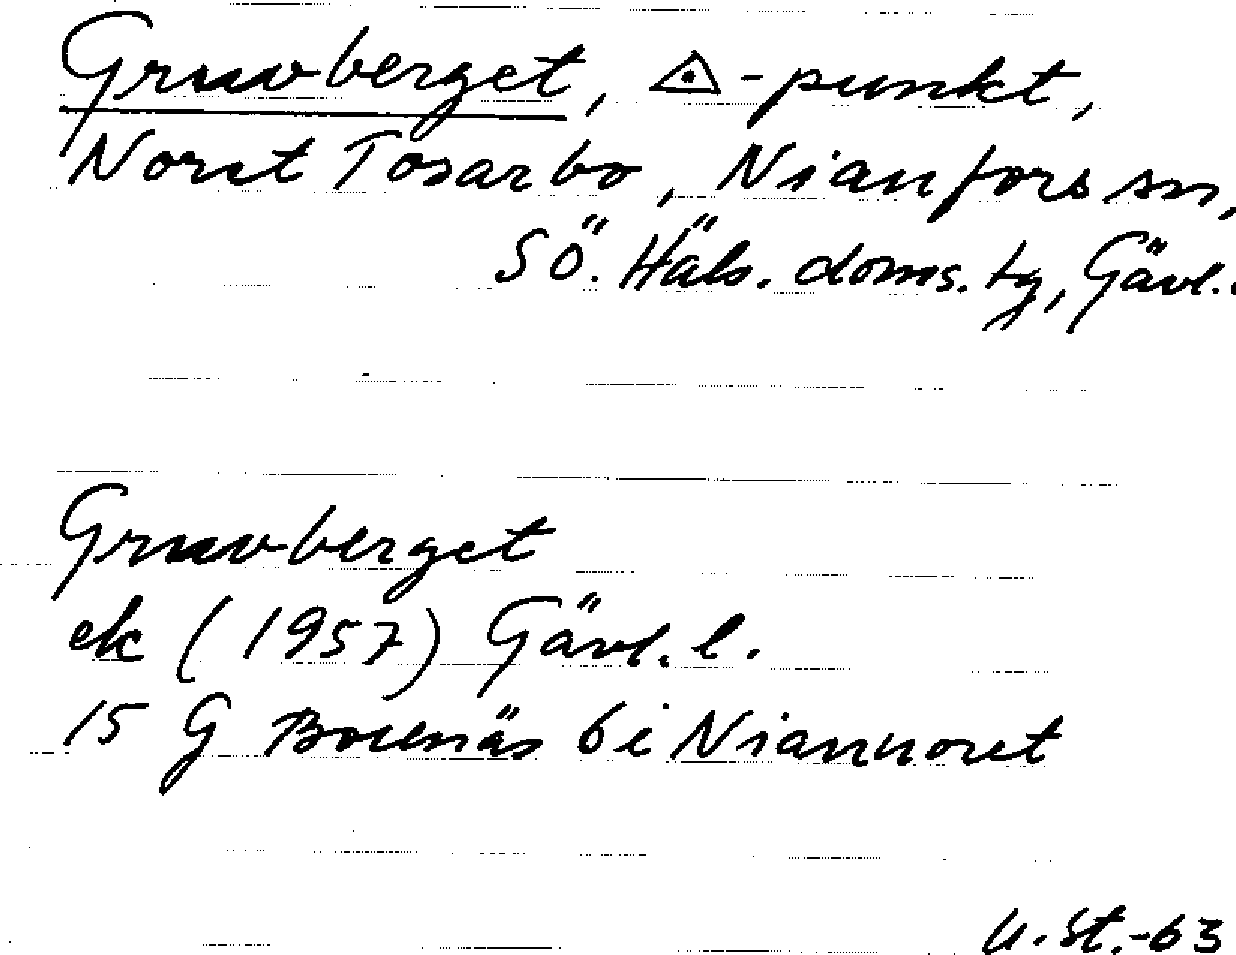 Gruvberget, △-punkt,
Noret Tosarbo, Nianfors sn,
SÖ. Häls. doms. tg, Gävl..
Gruvberget
ek (1957) Gävl. l.
15 G Bollnäs 6 i Niannoret
U. St.-63